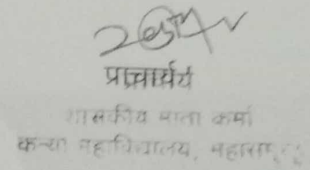 प्राचार्य
शासकीय माता कर्मा
कन्या महाविद्यालय, महासमुंद